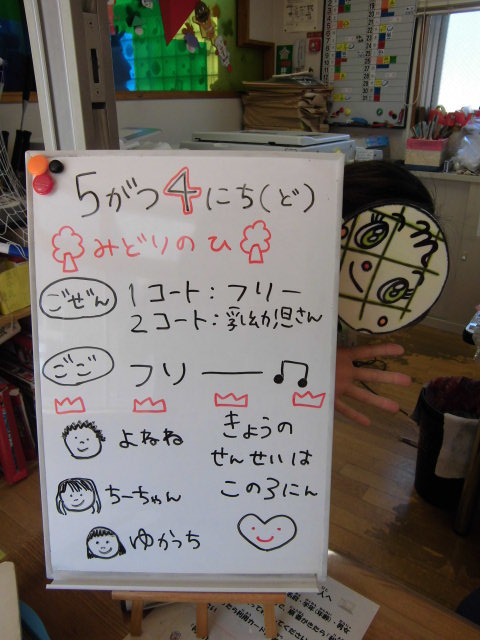 5がつ4にち(ど)
みどりのひ
ごぜん
1コート:フリー
2コート:乳幼児さん
ごご
フリー
よねね
ちーちゃん
ゆかっち
きょうの
せんせいは
この3にん